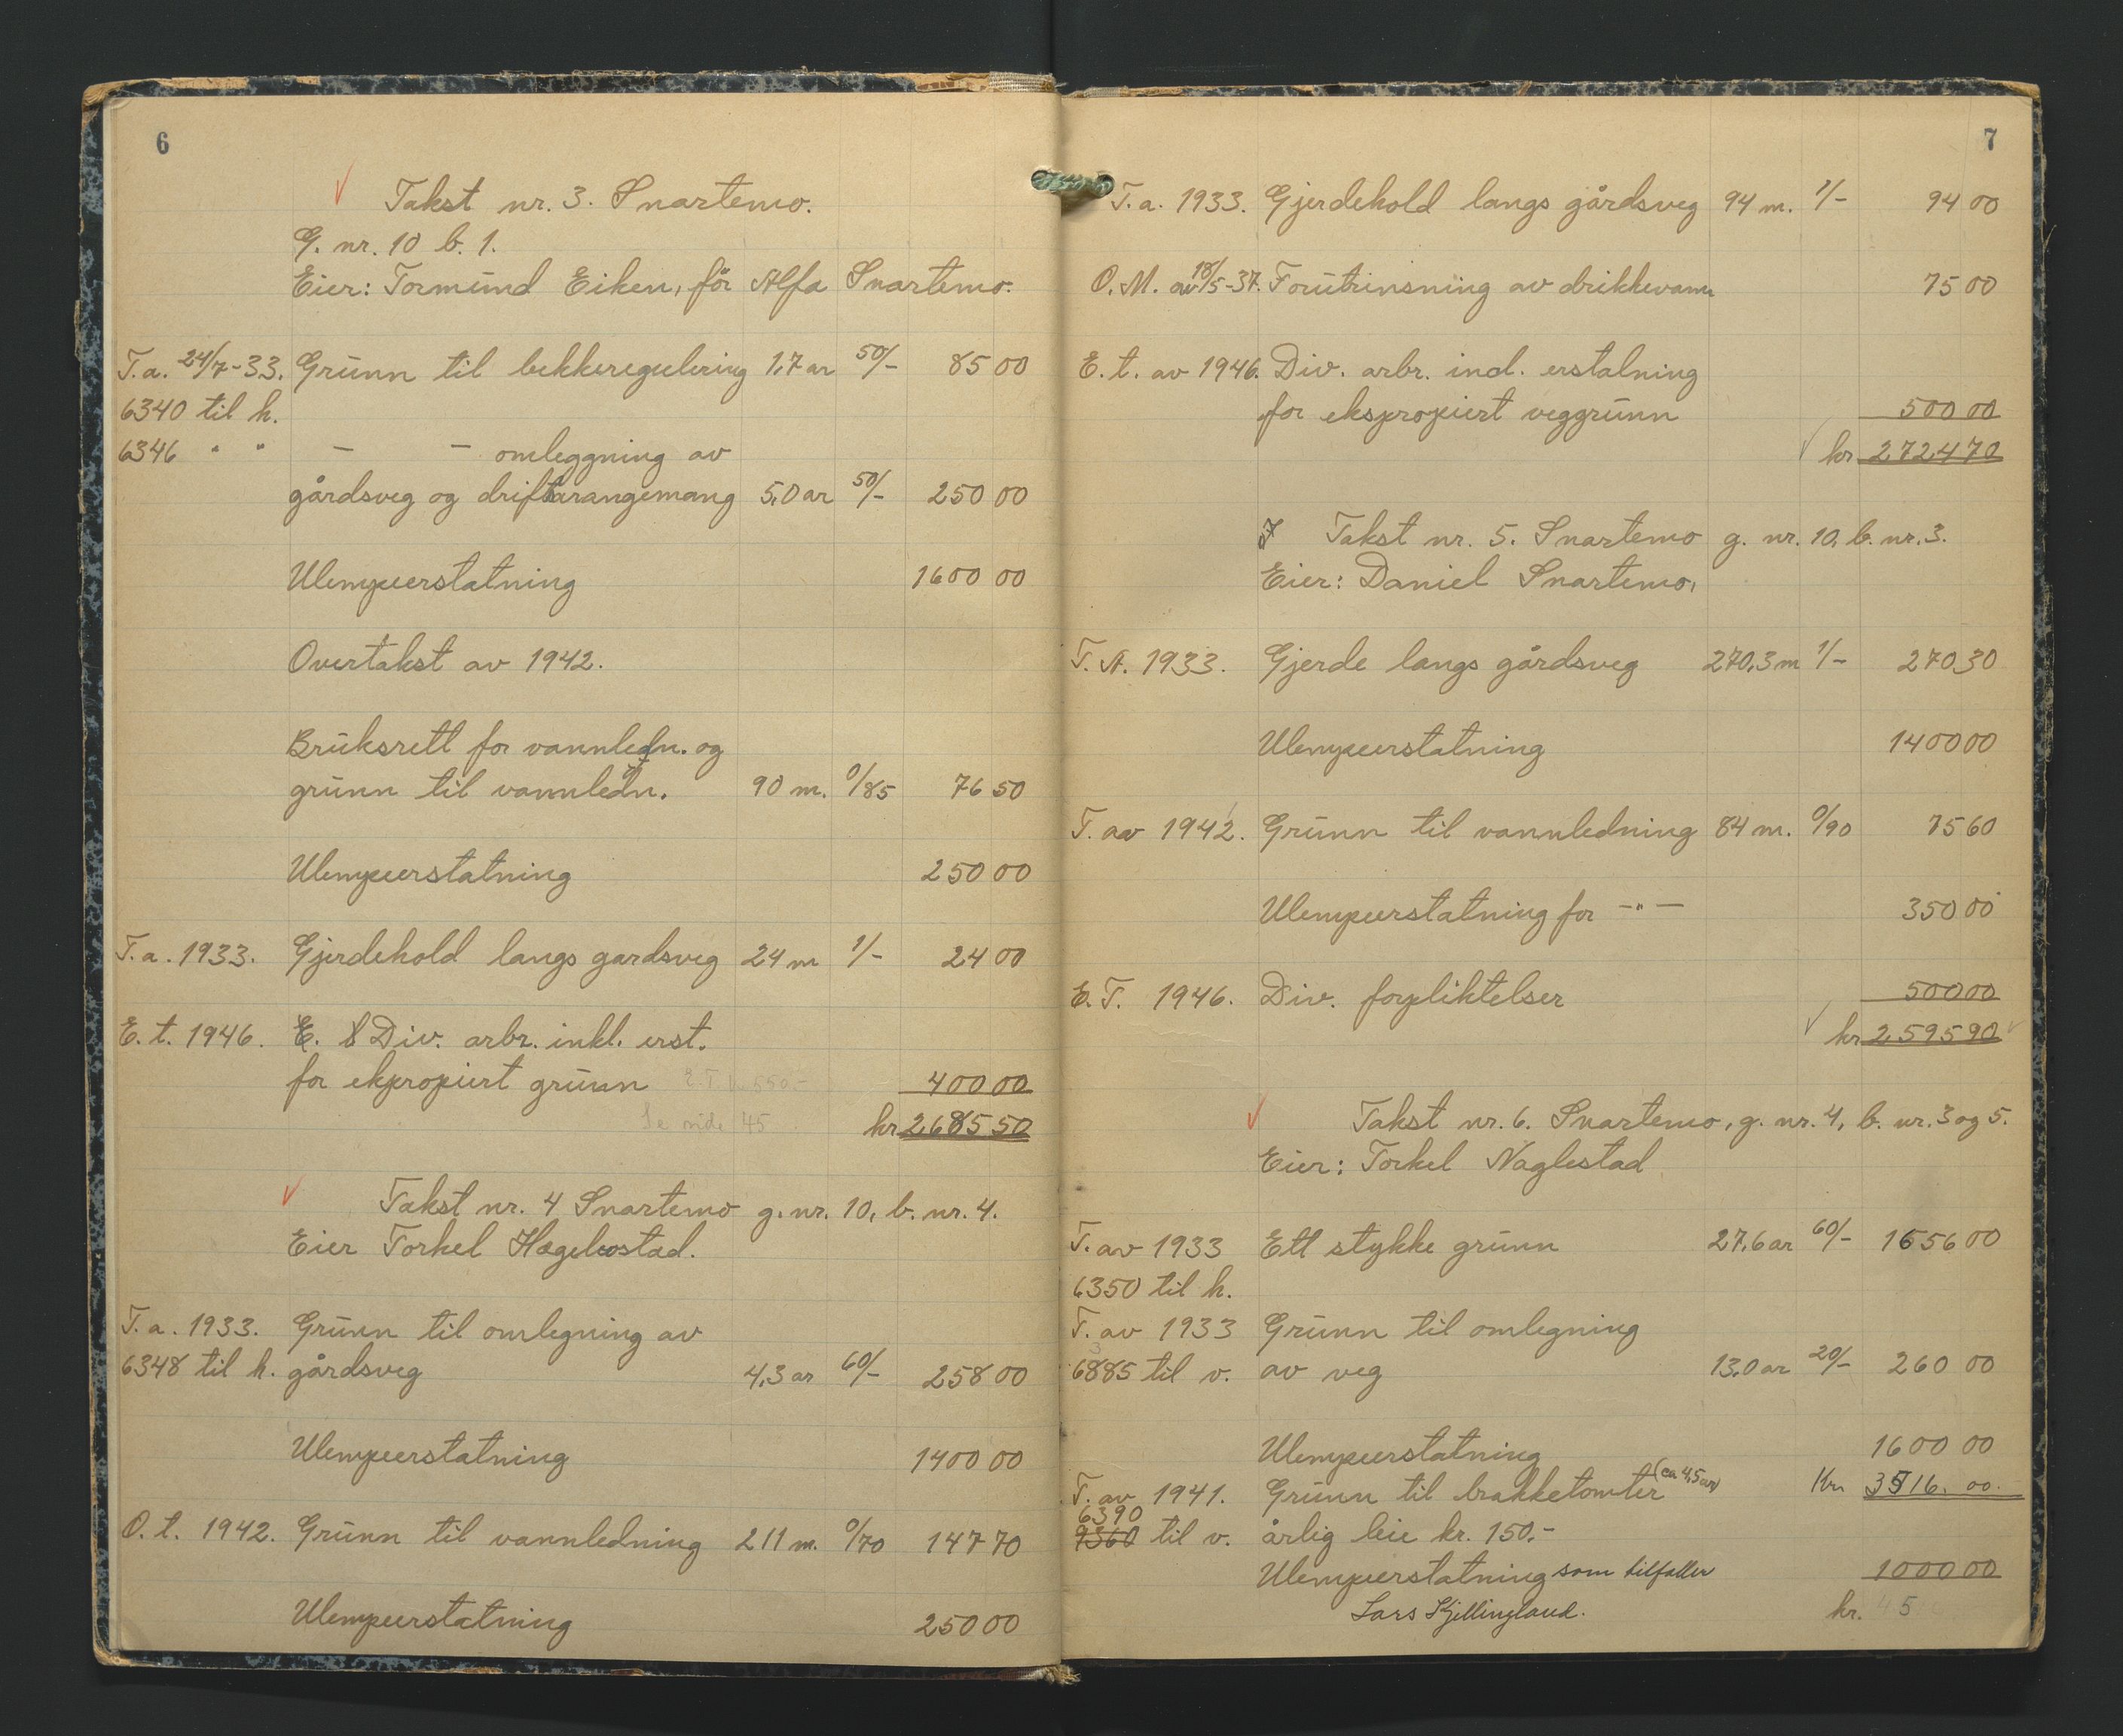 6
Takst nr. 3. Snartemo.
G. nr. 10 b. 1.
Eier: Tormund Eiken, før Alfa Snartemo.
T.a. 24/7-33. Grunn til bekkeregulering 1,7 ar 50/- 85 00
6340 til h.
6346 " " — — omleggning av
gårdsveg og driftsarangemang 5,0 ar 50/- 250 00
Ulempeerstatning 1600 00
Overtakst av 1942.
Bruksrett for vannledn. og
grunn til vannledn. 90 m. 0/85 76 50
Ulempeerstatning 250 00
T.a. 1933. Gjerdehold langs gardsveg 24 m 1/- 24 00
E. t. 1946. E. 8 Div. arbr. inkl. erst.
for ekpropiert grunn E.T. 550.- 400 00
Se side 45 kr 2685 50
Takst nr. 4 Snartemo g. nr. 10, b. nr. 4.
Eier Torkel Hægebostad.
T.a. 1933. Grunn til omlegning av
6348 til h. gårdsveg 4,3 ar 60/- 258 00
Ulempeerstatning 1400 00
O. t. 1942. Grunn til vannledning 211 m. 0/70 147 70
Ulempeerstatning 250 00
7
T.a. 1933. Gjerdehold langs gårdsveg 94 m. 1/- 94 00
O.M. av 18/5-37. Forutrinsning av drikkevann 75 00
E. t. av 1946. Div. arbr. incl. erstatning
for ekspropiert veggrunn 500 00
kr 2724 70
Takst nr. 5. Snartemo g. nr. 10, b. nr. 3.
Eier: Daniel Snartemo,
T. A. 1933. Gjerde langs gårdsveg 270,3 m 1/- 270 30
Ulempeerstatning 1400 00
T. av 1942. Grunn til vannledning 84 m. 0/90 75 60
Ulempeerstatning for —"— 350 00
E. T. 1946. Div. forpliktelser 500 00
kr 2595 90
Takst nr. 6. Snartemo, g. nr. 4, b. nr. 3 og 5.
Eier: Torkel Naglestad
T. av 1933 Ett stykke grunn 27,6 ar 60/- 1656 00
6350 til h.
T. av 1933 Grunn til omlegning
6885 til v. av veg 13,0 ar 20/- 260 00
Ulempeerstatning 1600 00
T. av 1941. Grunn til brakketomter (ca 4,5 ar) Kr. 3516. 00.
6390
9360 til v. årlig leie kr. 150,-
Ulempeerstatning som tilfaller 1000 00
Lars Kjellingland. kr. 45